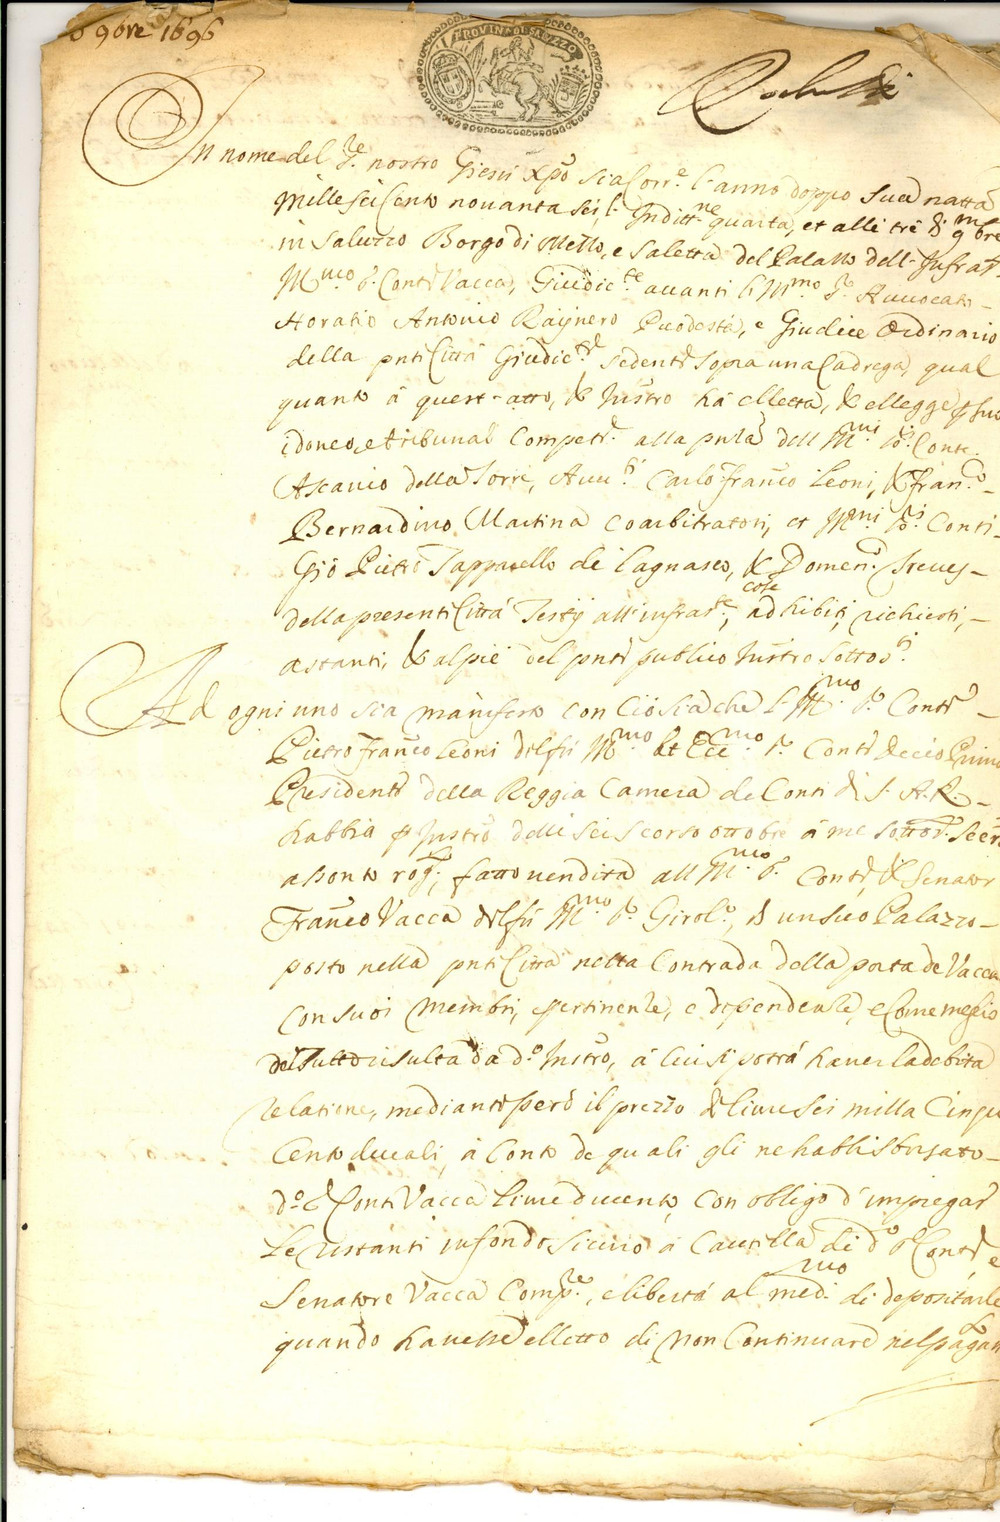 9bre 1696
PROVIN DI SALUZZO
In nome del Sre nostro Giesu Xpo sia Corre l'anno doppo sua natta
Milleseicento novanta sei, l'Inditne quarta, et alli tre di 9mbre
in Saluzzo Borgo di Mezzo, e Saletta del Palazzo dell' Infratto
Mmo Sr Conte Vacca, Giudicte avanti l'Illmo Sr Avvocato
Horatio Antonio Raynero Puodestà, e Giudice Ordinario
della pnte Città Giudicte, sedente sopra una Cadrega, qual
quanto à quest' atto, & Instro ha elletta, & ellegge p suo
idoneo, e tribunal Compette alla pnza dell Mmi SSri Conte
Ascanio della Torre, Avvto Carlo Franco Leoni, & Franco
Bernardino Martina Coarbitratori, et Mmi SSri Conti
Gio Pietro Tapparello di Lagnasco, & Domenco
della presente Città Testij all' infratte cose, adhibiti, richiesti,
astanti, & al piè del pnte publico Instro sottosti
Ad ogni uno sia manifesto con Ciò sia che l'Illmo Sr Conte
Pietro Franco Leoni del fu Mmo et Eccmo Sr Conte Decio Primo
Presidente della Reggia Camera de Conti di S. A. R.
habbia p Instro delli sei scorso ottobre à me sottos
rogto, fatto vendita all Mmo Sr Conte, & Senator
Franco Vacca del fu Mmo Sr Girolo, di un suo Palazzo
posto nella pnte Città nella Contrada della porta de Vacca
con suoi membri, pertinenze, e dependenze, e Come meglio
del tutto risulta da do Instro, à Cui si potrà haver la debita
relatione, mediante però il prezzo di live sei milla Cinque
Cento ducali, à Conto de quali gli ne habbi sborsato
do Sr Conte Vacca Live ducento, con obligo d'impiegar
Le restanti in fondo sicuro à Cautella di do Sr Conte, e
Senatore Vacca Compre, e libertà al medmo di depositarle
quando havesse elletto di non Continuare nel pagam